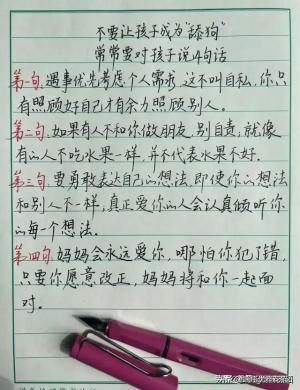 不要让孩子成为"舔狗"
常常要对孩子说4句话
第一句.遇事优先考虑个人需求,这不叫自私,你只
有照顾好自己才有余力照顾别人。
第二句.如果有人不和你做朋友,别自责,就像
有的人不吃水果一样,并不代表水果不好.
第三句.要勇敢表达自己的想法,即使你的想法
和别人不一样,真正爱你的人会认真倾听你
的每一个想法.
第四句.妈妈会永远爱你,哪怕你犯了错,
只要你愿意改正,妈妈将和你一起面
对。